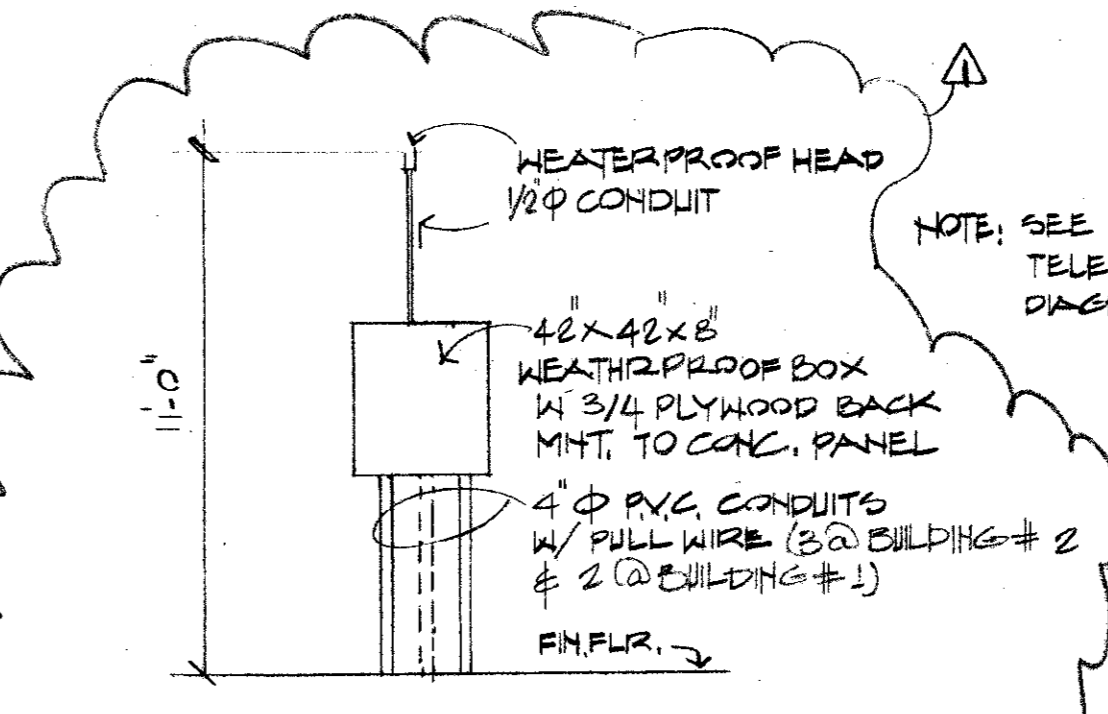 1
WEATERPROOF HEAD
1/2"Φ CONDUIT
NOTE: SEE
TELE
DIAG
42" X 42" X 8"
WEATHRPROOF BOX
W 3/4 PLYWOOD BACK
MNT. TO CONC. PANEL
11'-0"
4" Φ P.V.C. CONDUITS
W/ PULL WIRE (3 @ BUILDING # 2
& 2 @ BUILDING # 1)
FIN. FLR.